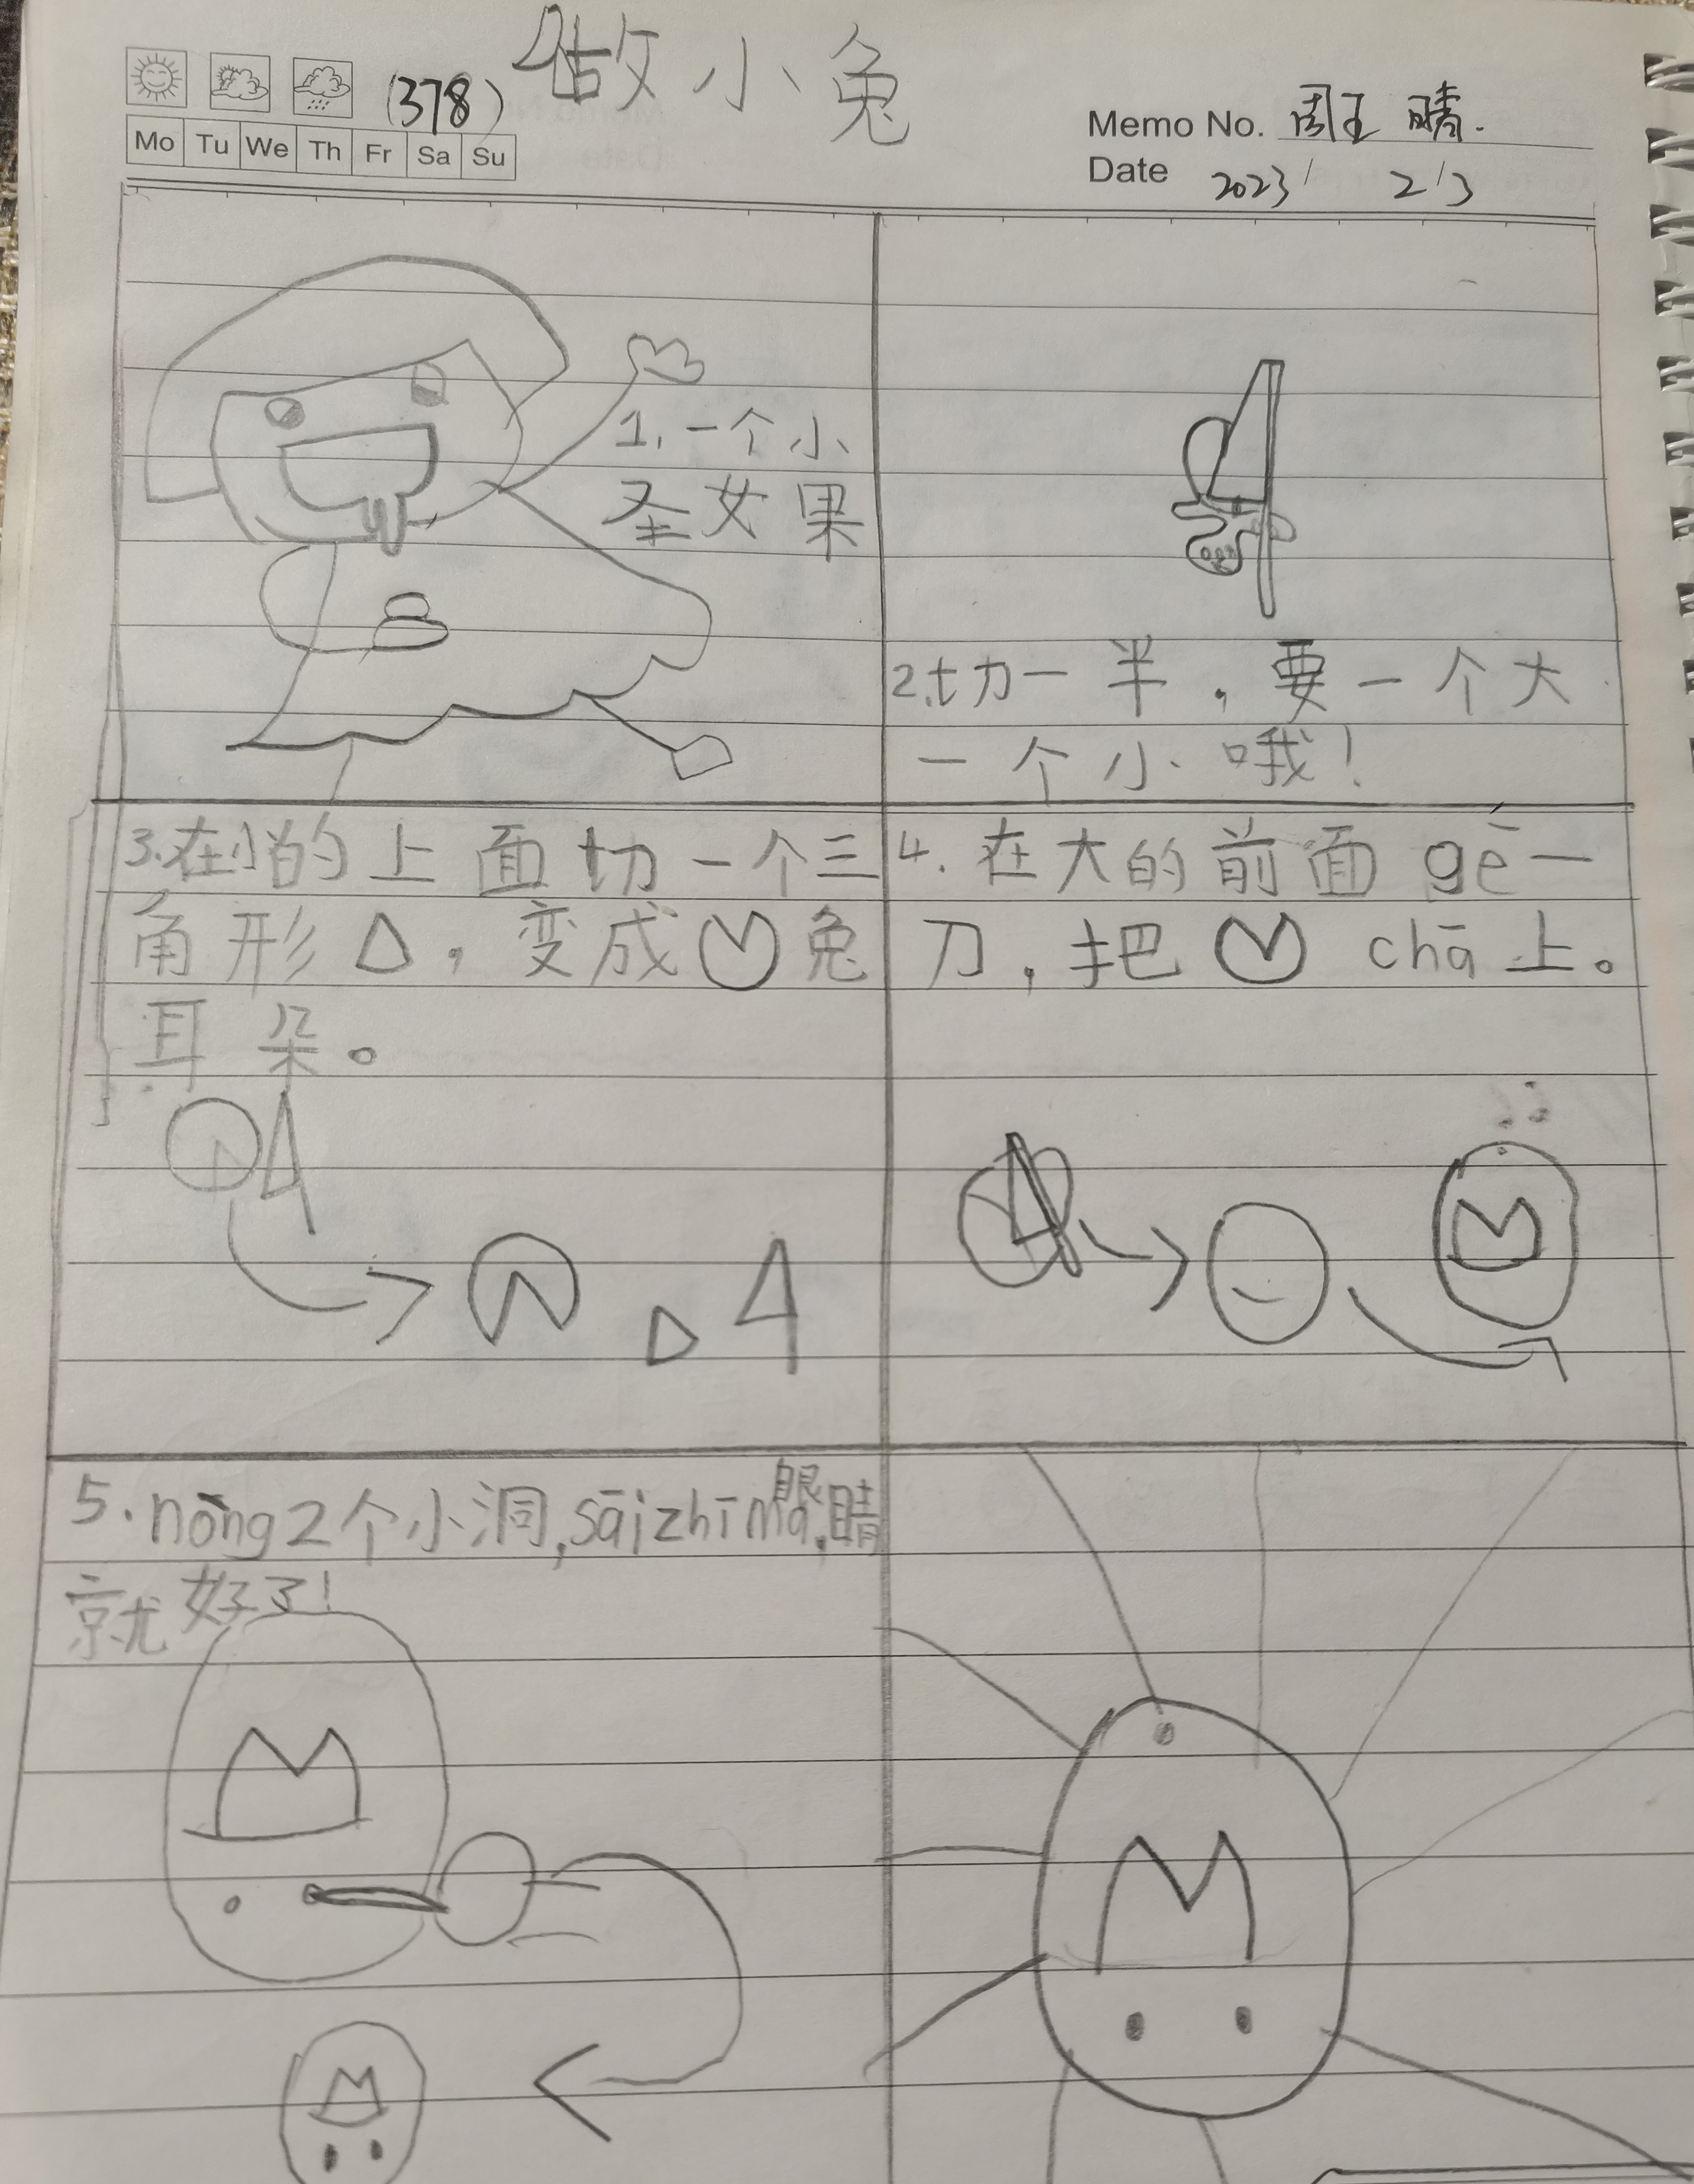 (378) 做小兔
Mo Tu We Th Fr Sa Su
Memo No. 周王晴.
Date 2023/ 2/3
1.一个小
圣女果
2.切一半，要一个大
一个小哦！
3.在小的上面切一个三
角形△，变成兔
耳朵。
4.在大的前面gē一
刀，把 chā上。
5.nōng2个小洞,sāizhīmá,眼睛
就好了!